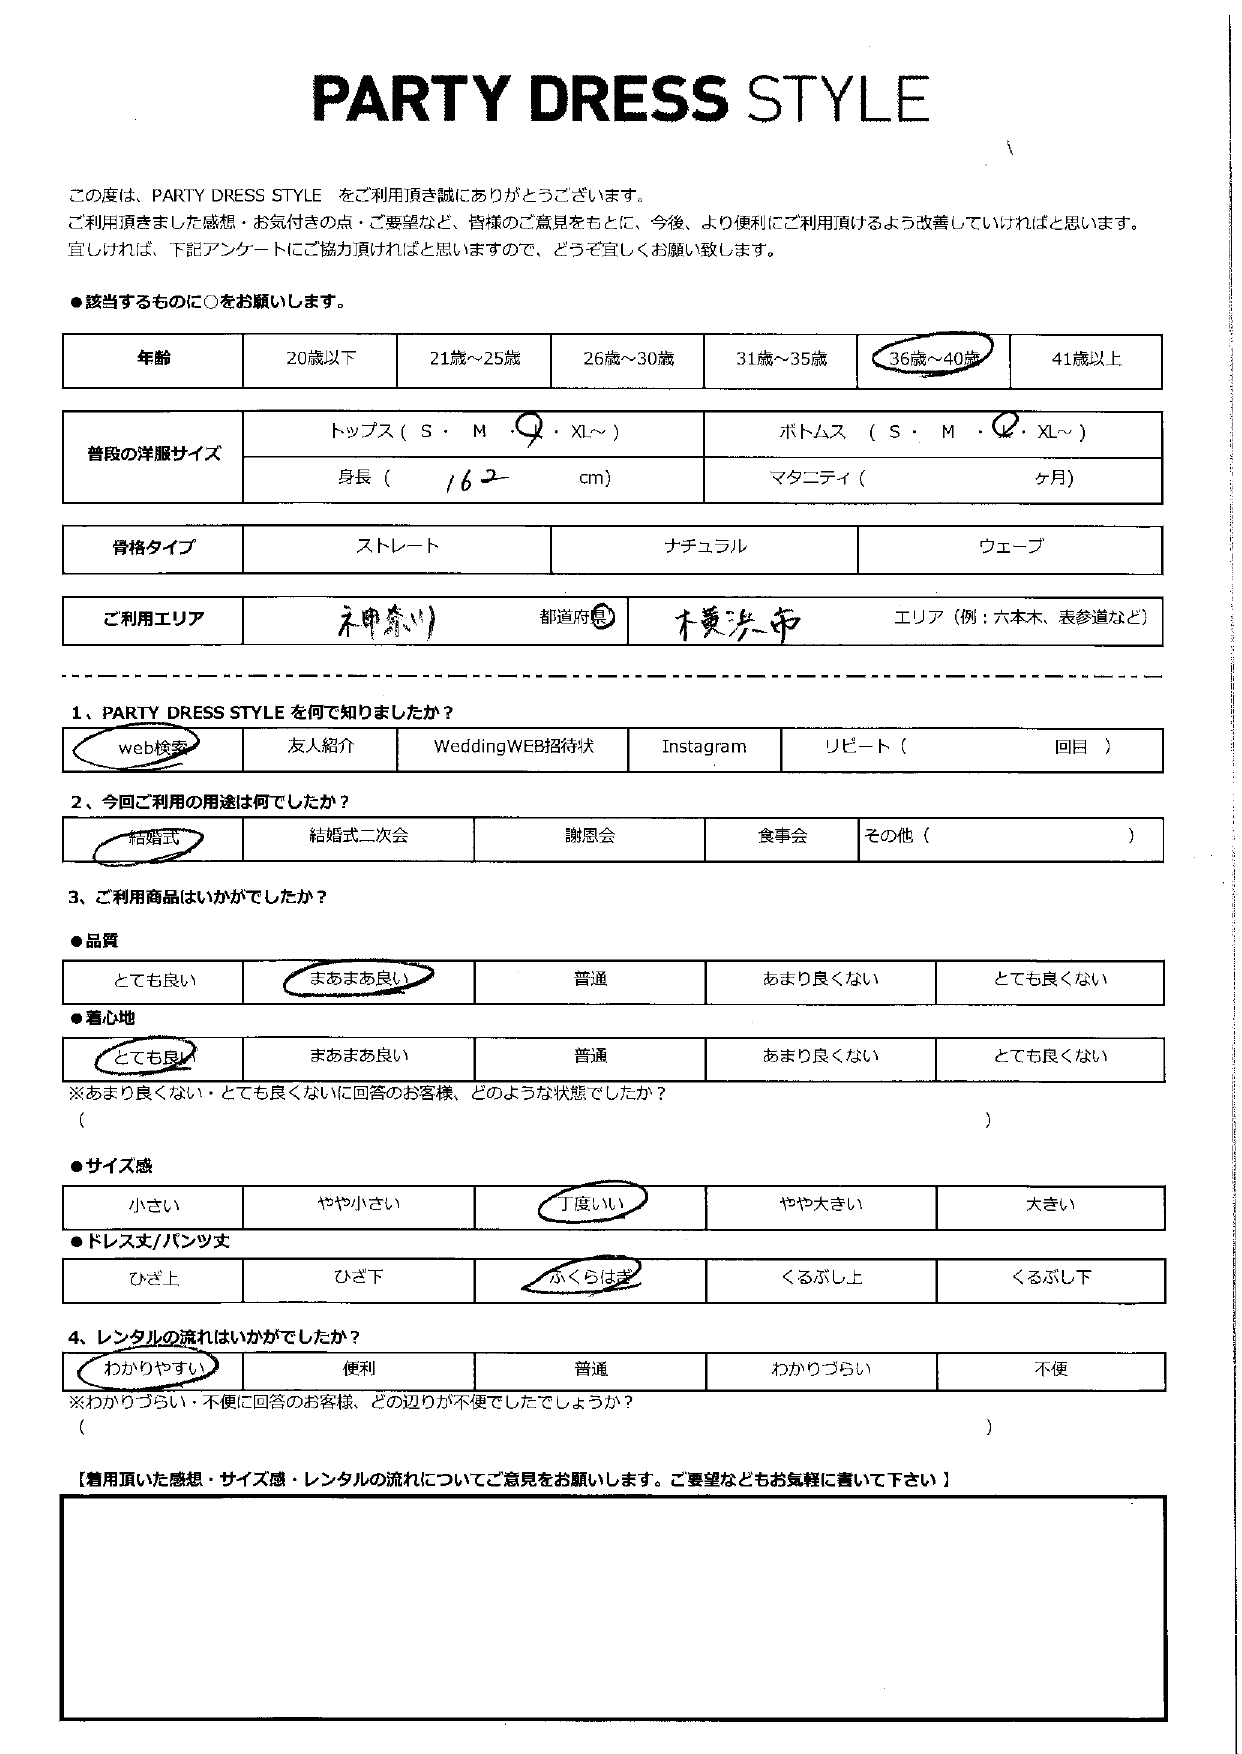 PARTY DRESS STYLE
この度は、PARTY DRESS STYLE をご利用頂き誠にありがとうございます。
ご利用頂きました感想・お気付きの点・ご要望など、皆様のご意見をもとに、今後、より便利にご利用頂けるよう改善していければと思います。
宜しければ、下記アンケートにご協力頂ければと思いますので、どうぞ宜しくお願い致します。
●該当するものに○をお願いします。
年齢 20歳以下 21歳～25歳 26歳～30歳 31歳～35歳 36歳～40歳 41歳以上
普段の洋服サイズ
トップス ( S ・ M ・ L ・ XL～ ) ボトムス ( S ・ M ・ L ・ XL～ )
身長 ( 162 cm) マタニティ ( ヶ月)
骨格タイプ ストレート ナチュラル ウェーブ
ご利用エリア 神奈川 都道府県 横浜市 エリア（例：六本木、表参道など）
1、PARTY DRESS STYLE を何で知りましたか？
web検索 友人紹介 WeddingWEB招待状 Instagram リピート（ 回目 ）
2、今回ご利用の用途は何でしたか？
結婚式 結婚式二次会 謝恩会 食事会 その他（ ）
3、ご利用商品はいかがでしたか？
●品質
とても良い まあまあ良い 普通 あまり良くない とても良くない
●着心地
とても良い まあまあ良い 普通 あまり良くない とても良くない
※あまり良くない・とても良くないに回答のお客様、どのような状態でしたか？
（ ）
●サイズ感
小さい やや小さい 丁度いい やや大きい 大きい
●ドレス丈/パンツ丈
ひざ上 ひざ下 ふくらはぎ くるぶし上 くるぶし下
4、レンタルの流れはいかがでしたか？
わかりやすい 便利 普通 わかりづらい 不便
※わかりづらい・不便に回答のお客様、どの辺りが不便でしたでしょうか？
（ ）
【着用頂いた感想・サイズ感・レンタルの流れについてご意見をお願いします。ご要望などもお気軽に書いて下さい 】